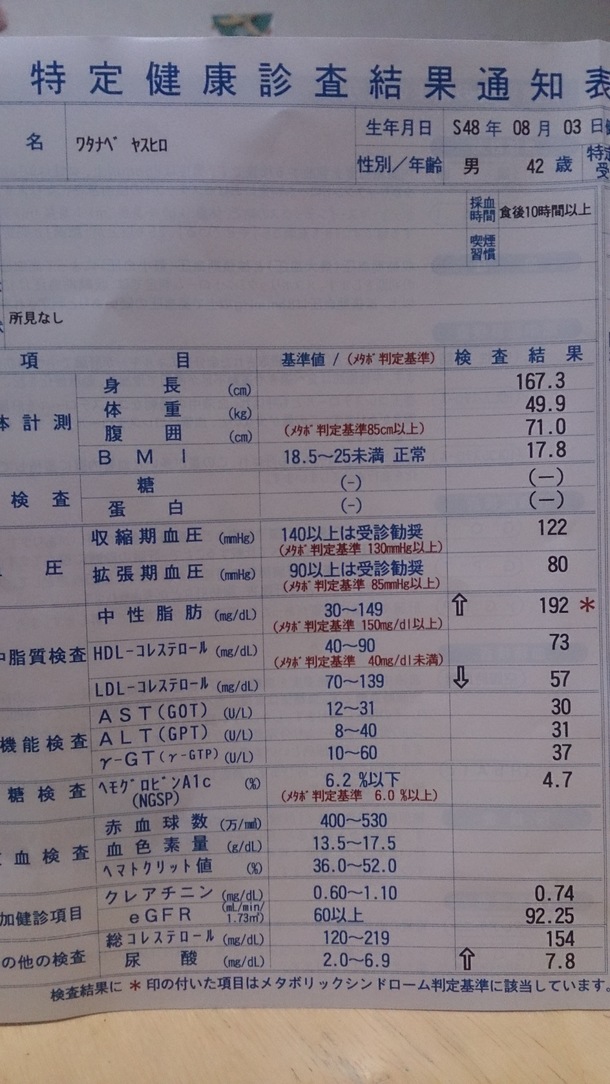 特定健康診査結果通知表
名 ワタナベ ヤスヒロ 生年月日 S48年 08月 03日
性別／年齢 男 42歳
採血時間 食後10時間以上
喫煙習慣
所見なし
項 目 基準値 / (メタボ判定基準) 検査結果
体計測 身長 (cm) 167.3
体重 (kg) 49.9
腹囲 (cm) (メタボ判定基準85cm以上) 71.0
BMI 18.5～25未満 正常 17.8
検査 糖 (-) (－)
蛋白 (-) (－)
圧 収縮期血圧 (mmHg) 140以上は受診勧奨 122
(メタボ判定基準 130mmHg以上)
拡張期血圧 (mmHg) 90以上は受診勧奨 80
(メタボ判定基準 85mmHg以上)
中性脂肪 (mg/dL) 30～149 ⇧ 192 *
(メタボ判定基準 150mg/dl以上)
中脂質検査 HDL-コレステロール (mg/dL) 40～90 73
(メタボ判定基準 40mg/dl未満)
LDL-コレステロール (mg/dL) 70～139 ⇩ 57
機能検査 AST(GOT) (U/L) 12～31 30
ALT(GPT) (U/L) 8～40 31
γ-GT(γ-GTP) (U/L) 10～60 37
糖検査 ヘモグロビンA1c (%) 6.2 %以下 4.7
(NGSP) (メタボ判定基準 6.0 %以上)
血検査 赤血球数 (万/㎣) 400～530
血色素量 (g/dL) 13.5～17.5
ヘマトクリット値 (%) 36.0～52.0
加健診項目 クレアチニン (mg/dL) 0.60～1.10 0.74
eGFR (mL/min/1.73㎡) 60以上 92.25
の他の検査 総コレステロール (mg/dL) 120～219 154
尿酸 (mg/dL) 2.0～6.9 ⇧ 7.8
検査結果に * 印の付いた項目はメタボリックシンドローム判定基準に該当しています。